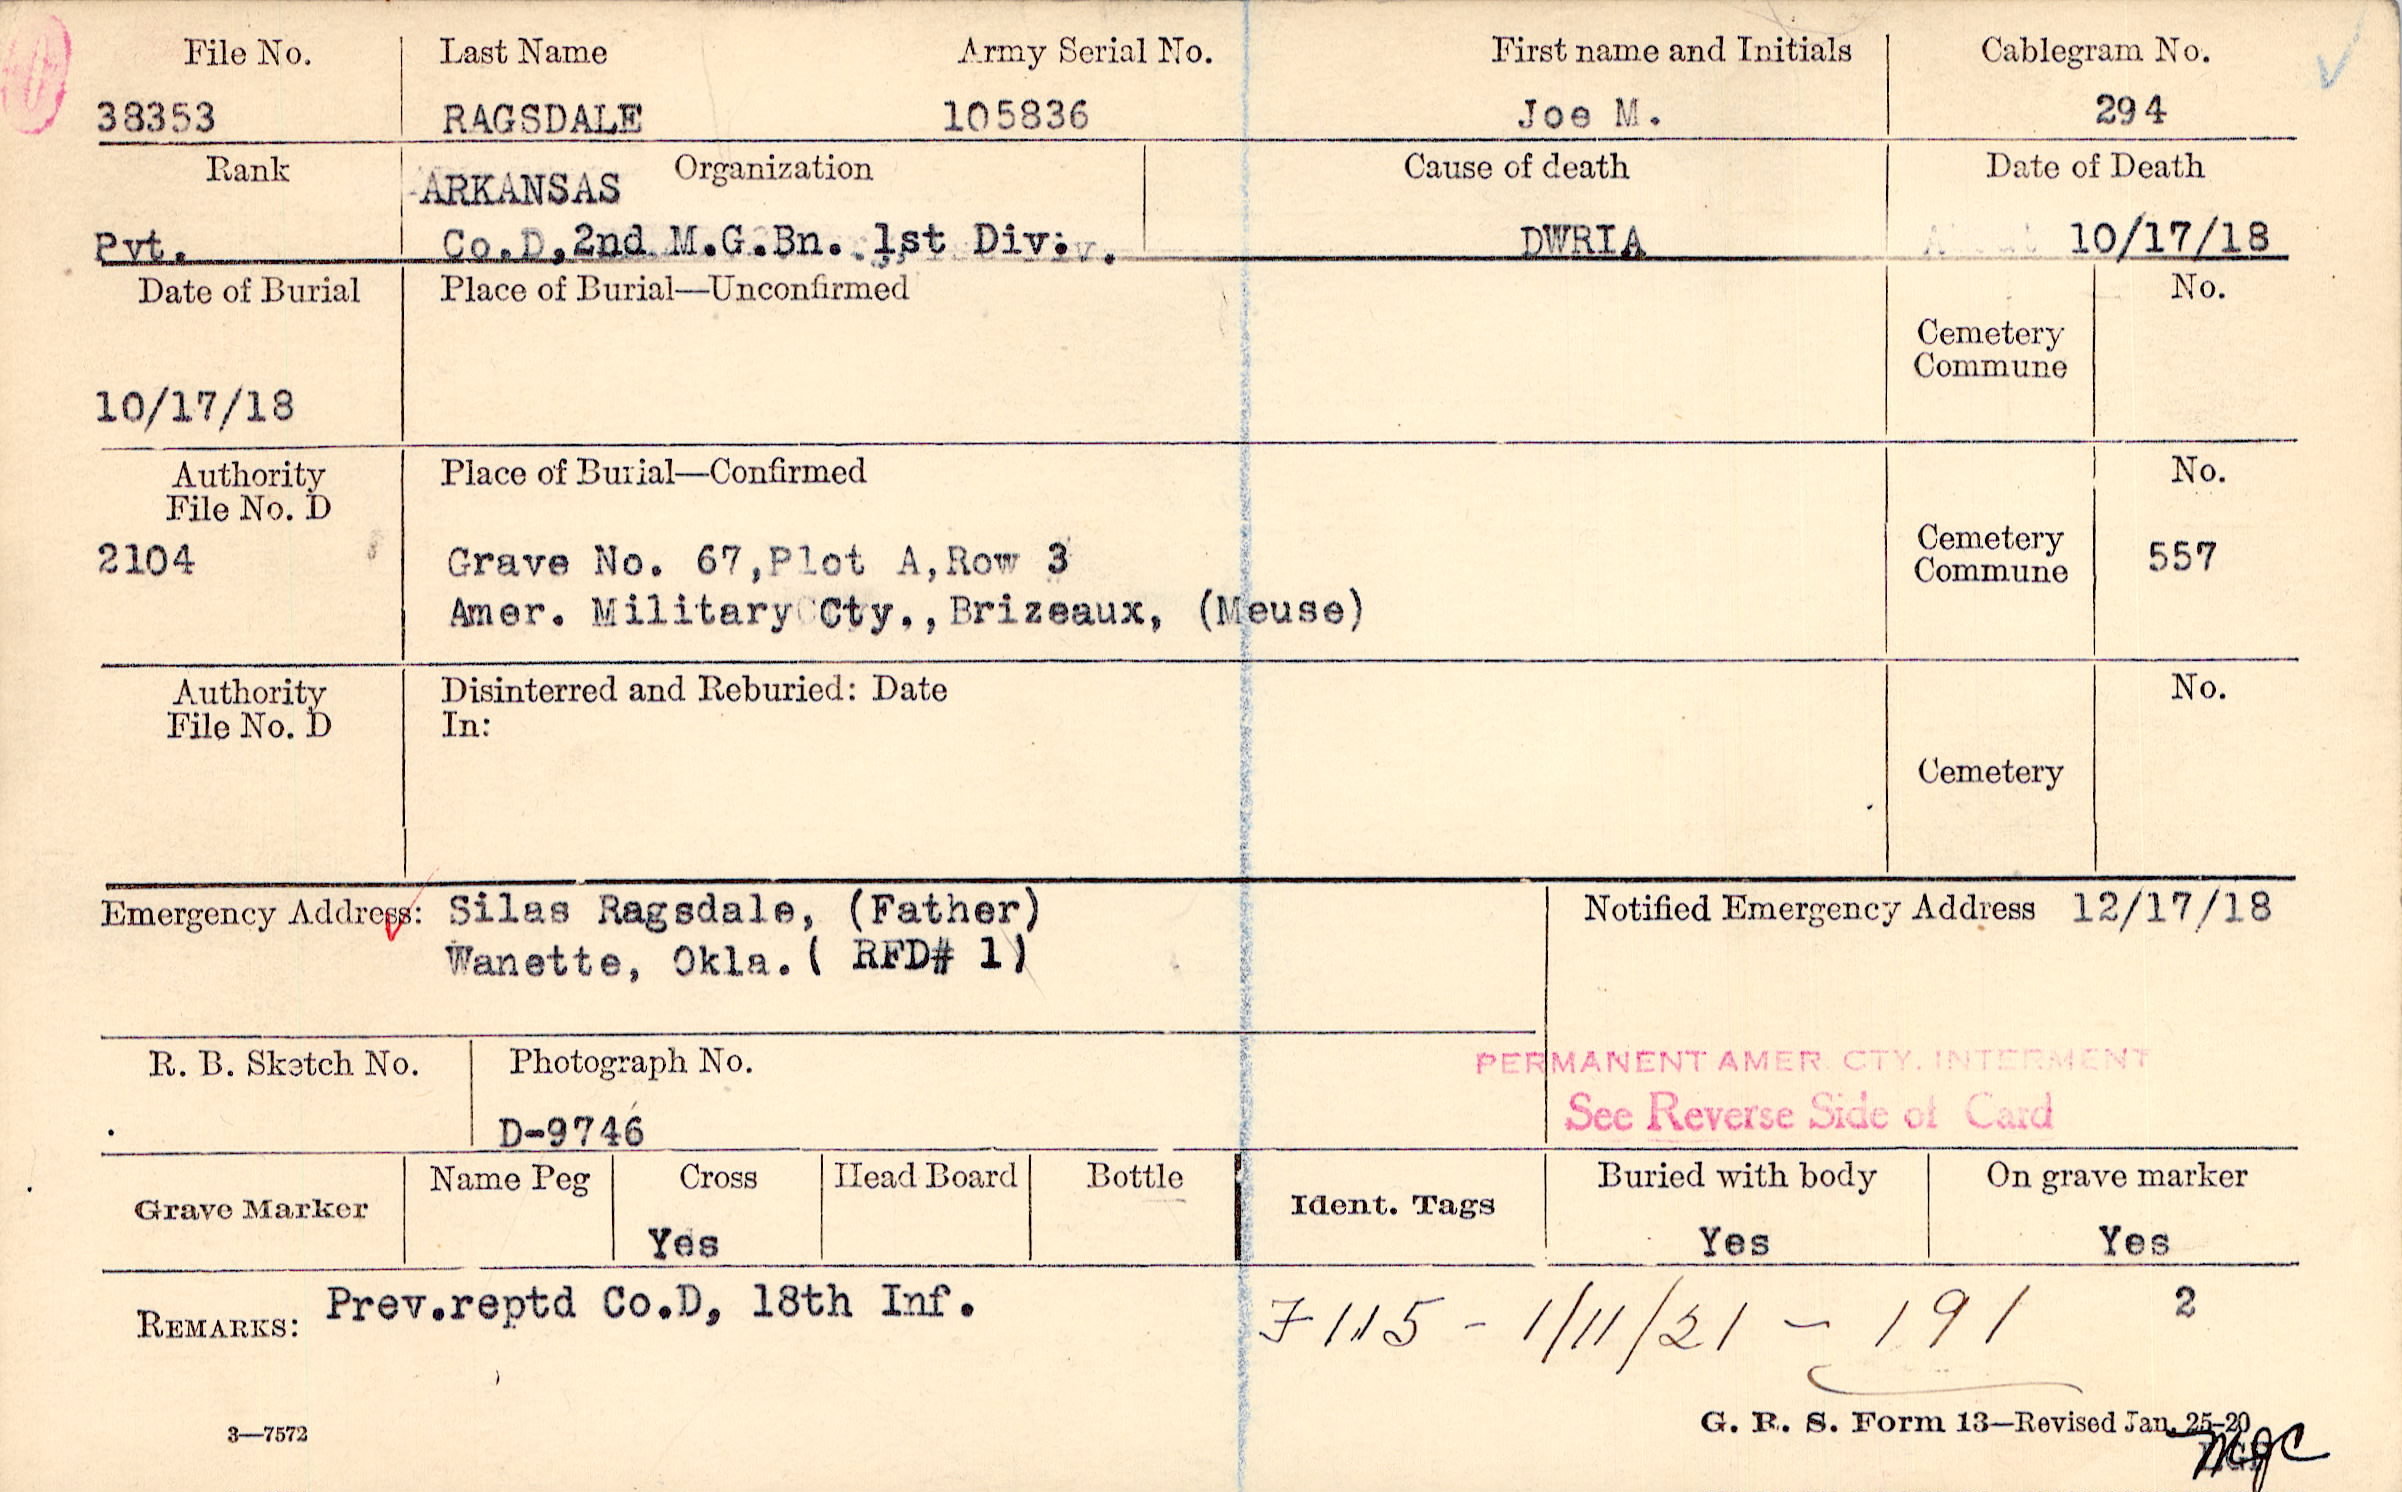 File No. Last Name Army Serial No. First name and Initials Cablegram No.
38353 RAGSDALE 105836 Joe M. 294
Rank ARKANSAS Organization Cause of death Date of Death
Pvt. Co.D,2nd M.G.Bn. 1st Div. DWRIA 10/17/18
Date of Burial Place of Burial—Unconfirmed No.
Cemetery
Commune
10/17/18
Authority Place of Burial—Confirmed No.
File No. D
2104 Grave No. 67,Plot A,Row 3 Cemetery Commune 557
Amer. Military Cty.,Brizeaux, (Meuse)
Authority Disinterred and Reburied: Date No.
File No. D In:
Cemetery
Emergency Address: Silas Ragsdale, (Father) Notified Emergency Address 12/17/18
Wanette, Okla. ( RFD# 1)
R. B. Sketch No. Photograph No. PERMANENT AMER. CTY. INTERMENT
D-9746 See Reverse Side of Card
Grave Marker Name Peg Cross Head Board Bottle Ident. Tags Buried with body On grave marker
Yes Yes Yes
REMARKS: Prev.reptd Co.D, 18th Inf. 2
1/11/21 - 191
3—7572 G. R. S. Form 13—Revised Jan. 25-20